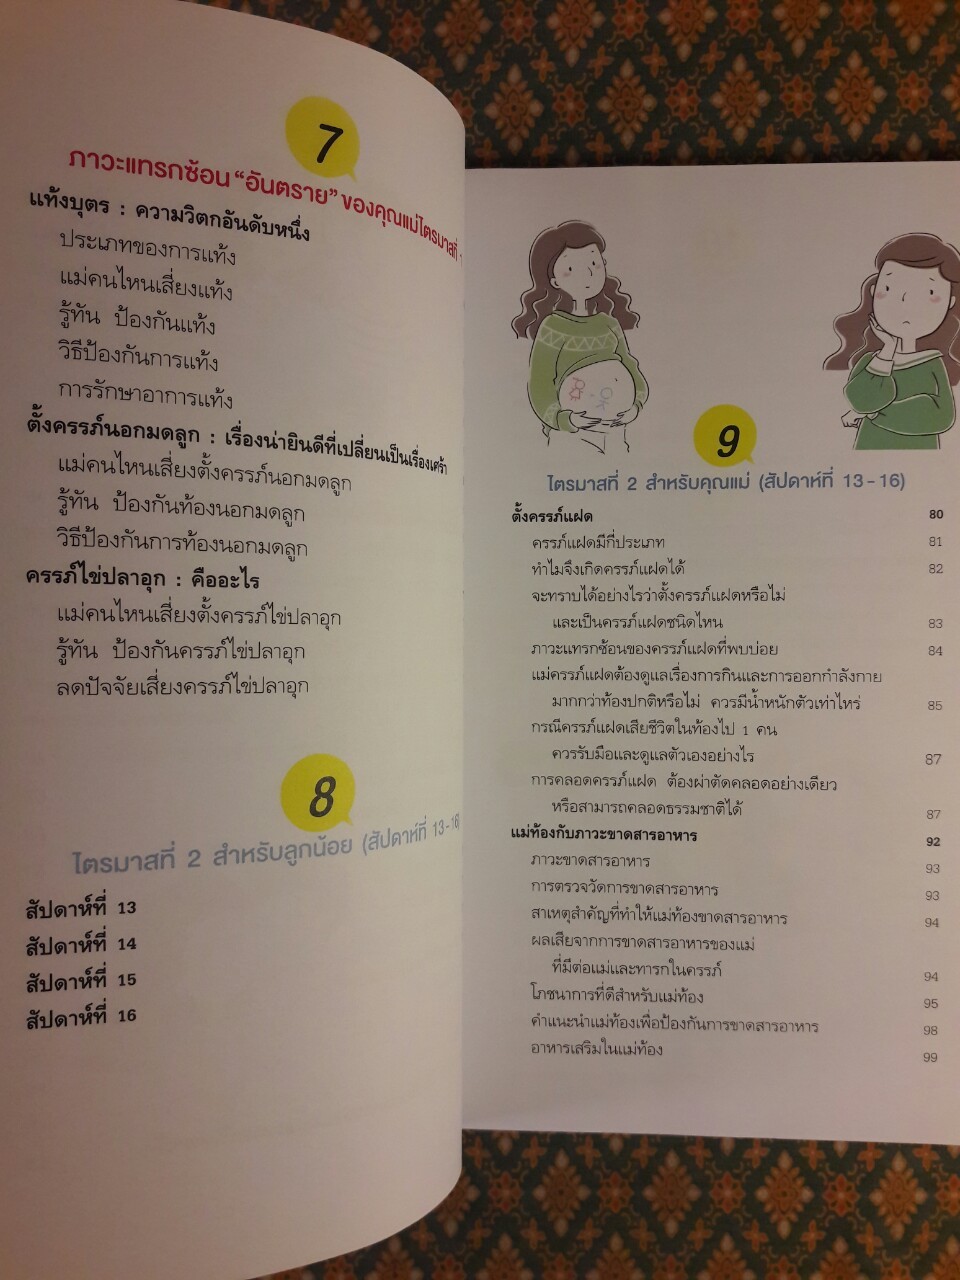 7
ภาวะแทรกซ้อน "อันตราย" ของคุณแม่ไตรมาสที่
แท้งบุตร : ความวิตกอันดับหนึ่ง
ประเภทของการแท้ง
แม่คนไหนเสี่ยงแท้ง
รู้ทัน ป้องกันแท้ง
วิธีป้องกันการแท้ง
การรักษาอาการแท้ง
ตั้งครรภ์นอกมดลูก : เรื่องน่ายินดีที่เปลี่ยนเป็นเรื่องเศร้า
แม่คนไหนเสี่ยงตั้งครรภ์นอกมดลูก
รู้ทัน ป้องกันท้องนอกมดลูก
วิธีป้องกันการท้องนอกมดลูก
ครรภ์ไข่ปลาอุก : คืออะไร
แม่คนไหนเสี่ยงตั้งครรภ์ไข่ปลาอุก
รู้ทัน ป้องกันครรภ์ไข่ปลาอุก
ลดปัจจัยเสี่ยงครรภ์ไข่ปลาอุก
8
ไตรมาสที่ 2 สำหรับลูกน้อย (สัปดาห์ที่ 13-16)
สัปดาห์ที่ 13
สัปดาห์ที่ 14
สัปดาห์ที่ 15
สัปดาห์ที่ 16
9
ไตรมาสที่ 2 สำหรับคุณแม่ (สัปดาห์ที่ 13-16)
ตั้งครรภ์แฝด 80
ครรภ์แฝดมีกี่ประเภท 81
ทำไมจึงเกิดครรภ์แฝดได้ 82
จะทราบได้อย่างไรว่าตั้งครรภ์แฝดหรือไม่
และเป็นครรภ์แฝดชนิดไหน 83
ภาวะแทรกซ้อนของครรภ์แฝดที่พบบ่อย 84
แม่ครรภ์แฝดต้องดูแลเรื่องการกินและการออกกำลังกาย
มากกว่าท้องปกติหรือไม่ ควรมีน้ำหนักตัวเท่าไหร่ 85
กรณีครรภ์แฝดเสียชีวิตในท้องไป 1 คน
ควรรับมือและดูแลตัวเองอย่างไร 87
การคลอดครรภ์แฝด ต้องผ่าตัดคลอดอย่างเดียว
หรือสามารถคลอดธรรมชาติได้ 87
แม่ท้องกับภาวะขาดสารอาหาร 92
ภาวะขาดสารอาหาร 93
การตรวจวัดการขาดสารอาหาร 93
สาเหตุสำคัญที่ทำให้แม่ท้องขาดสารอาหาร 94
ผลเสียจากการขาดสารอาหารของแม่
ที่มีต่อแม่และทารกในครรภ์ 94
โภชนาการที่ดีสำหรับแม่ท้อง 95
คำแนะนำแม่ท้องเพื่อป้องกันการขาดสารอาหาร 98
อาหารเสริมในแม่ท้อง 99